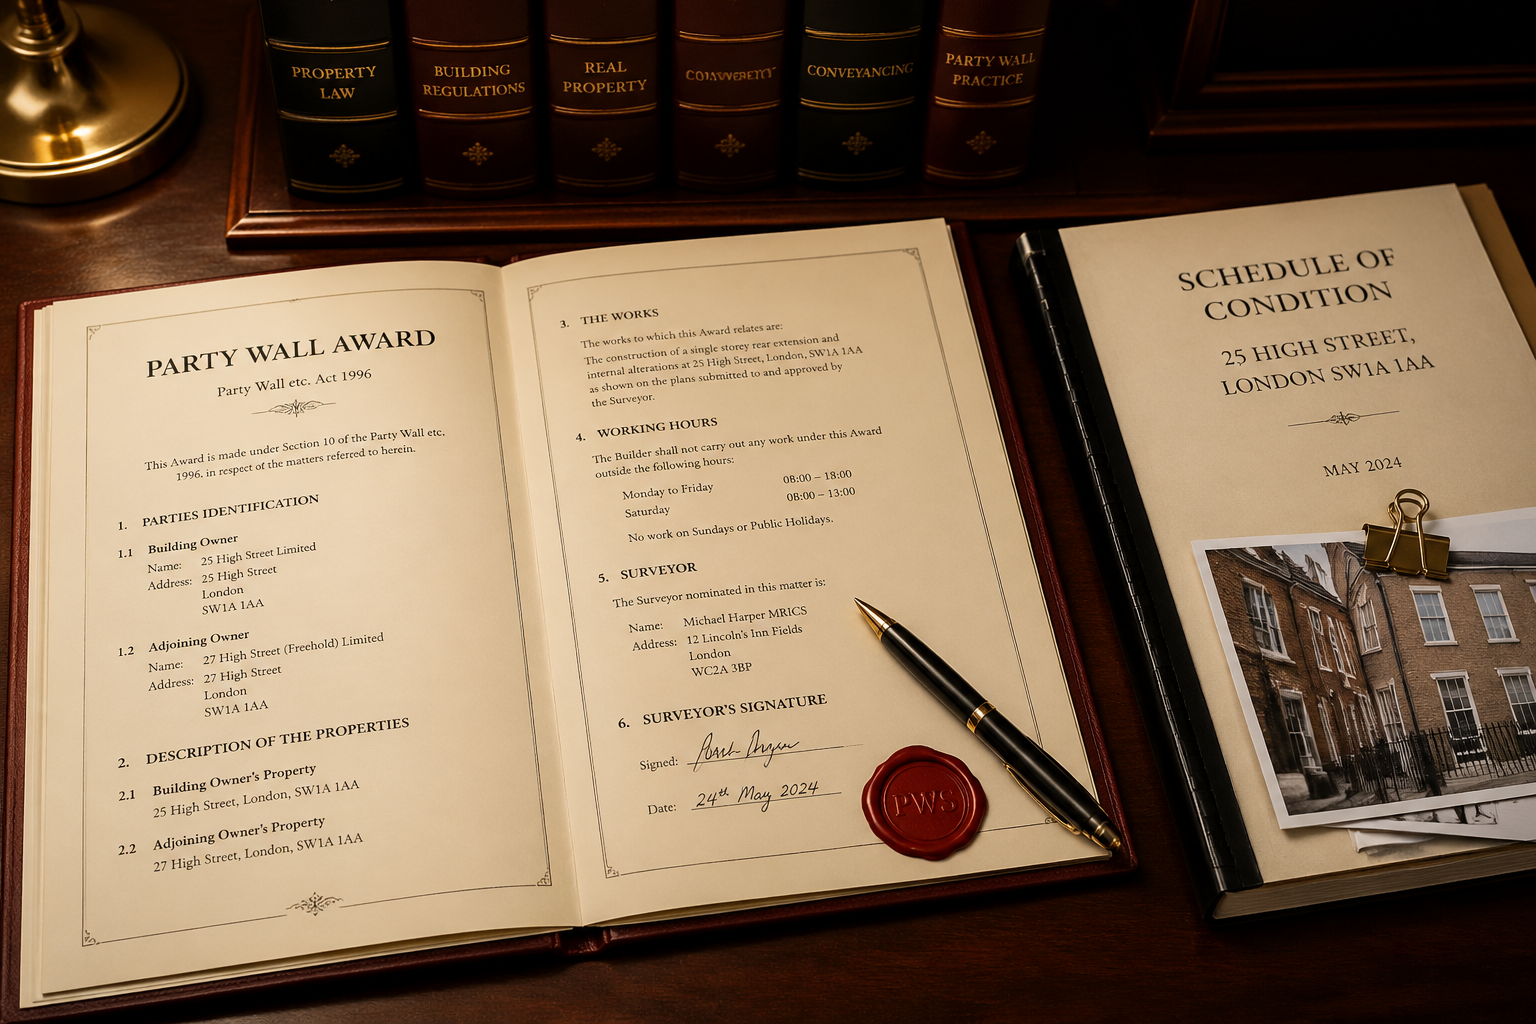 PROPERTY
LAW
BUILDING
REGULATIONS
REAL
PROPERTY
CONVEYANCING
PARTY WALL
PRACTICE
PARTY WALL AWARD
Party Wall etc. Act 1996
This Award is made under Section 10 of the Party Wall etc.
1996. in respect of the matters referred to herein.
1. PARTIES IDENTIFICATION
1.1 Building Owner
Name: 25 High Street Limited
Address: 25 High Street
London
SW1A 1AA
1.2 Adjoining Owner
Name: 27 High Street (Freehold) Limited
Address: 27 High Street
London
SW1A 1AA
2. DESCRIPTION OF THE PROPERTIES
2.1 Building Owner's Property
25 High Street, London, SW1A 1AA
2.2 Adjoining Owner's Property
27 High Street, London, SW1A 1AA
3. THE WORKS
The works to which this Award relates are:
The construction of a single storey rear extension and
internal alterations at 25 High Street, London, SW1A 1AA
as shown on the plans submitted to and approved by
the Surveyor.
4. WORKING HOURS
The Builder shall not carry out any work under this Award
outside the following hours:
Monday to Friday 08:00 – 18:00
Saturday 08:00 – 13:00
No work on Sundays or Public Holidays.
5. SURVEYOR
The Surveyor nominated in this matter is:
Name: Michael Harper MRICS
Address: 12 Lincoln's Inn Fields
London
WC2A 3BP
6. SURVEYOR'S SIGNATURE
Signed:
Date: 24th May 2024
PWS
SCHEDULE OF
CONDITION
25 HIGH STREET,
LONDON SW1A 1AA
MAY 2024